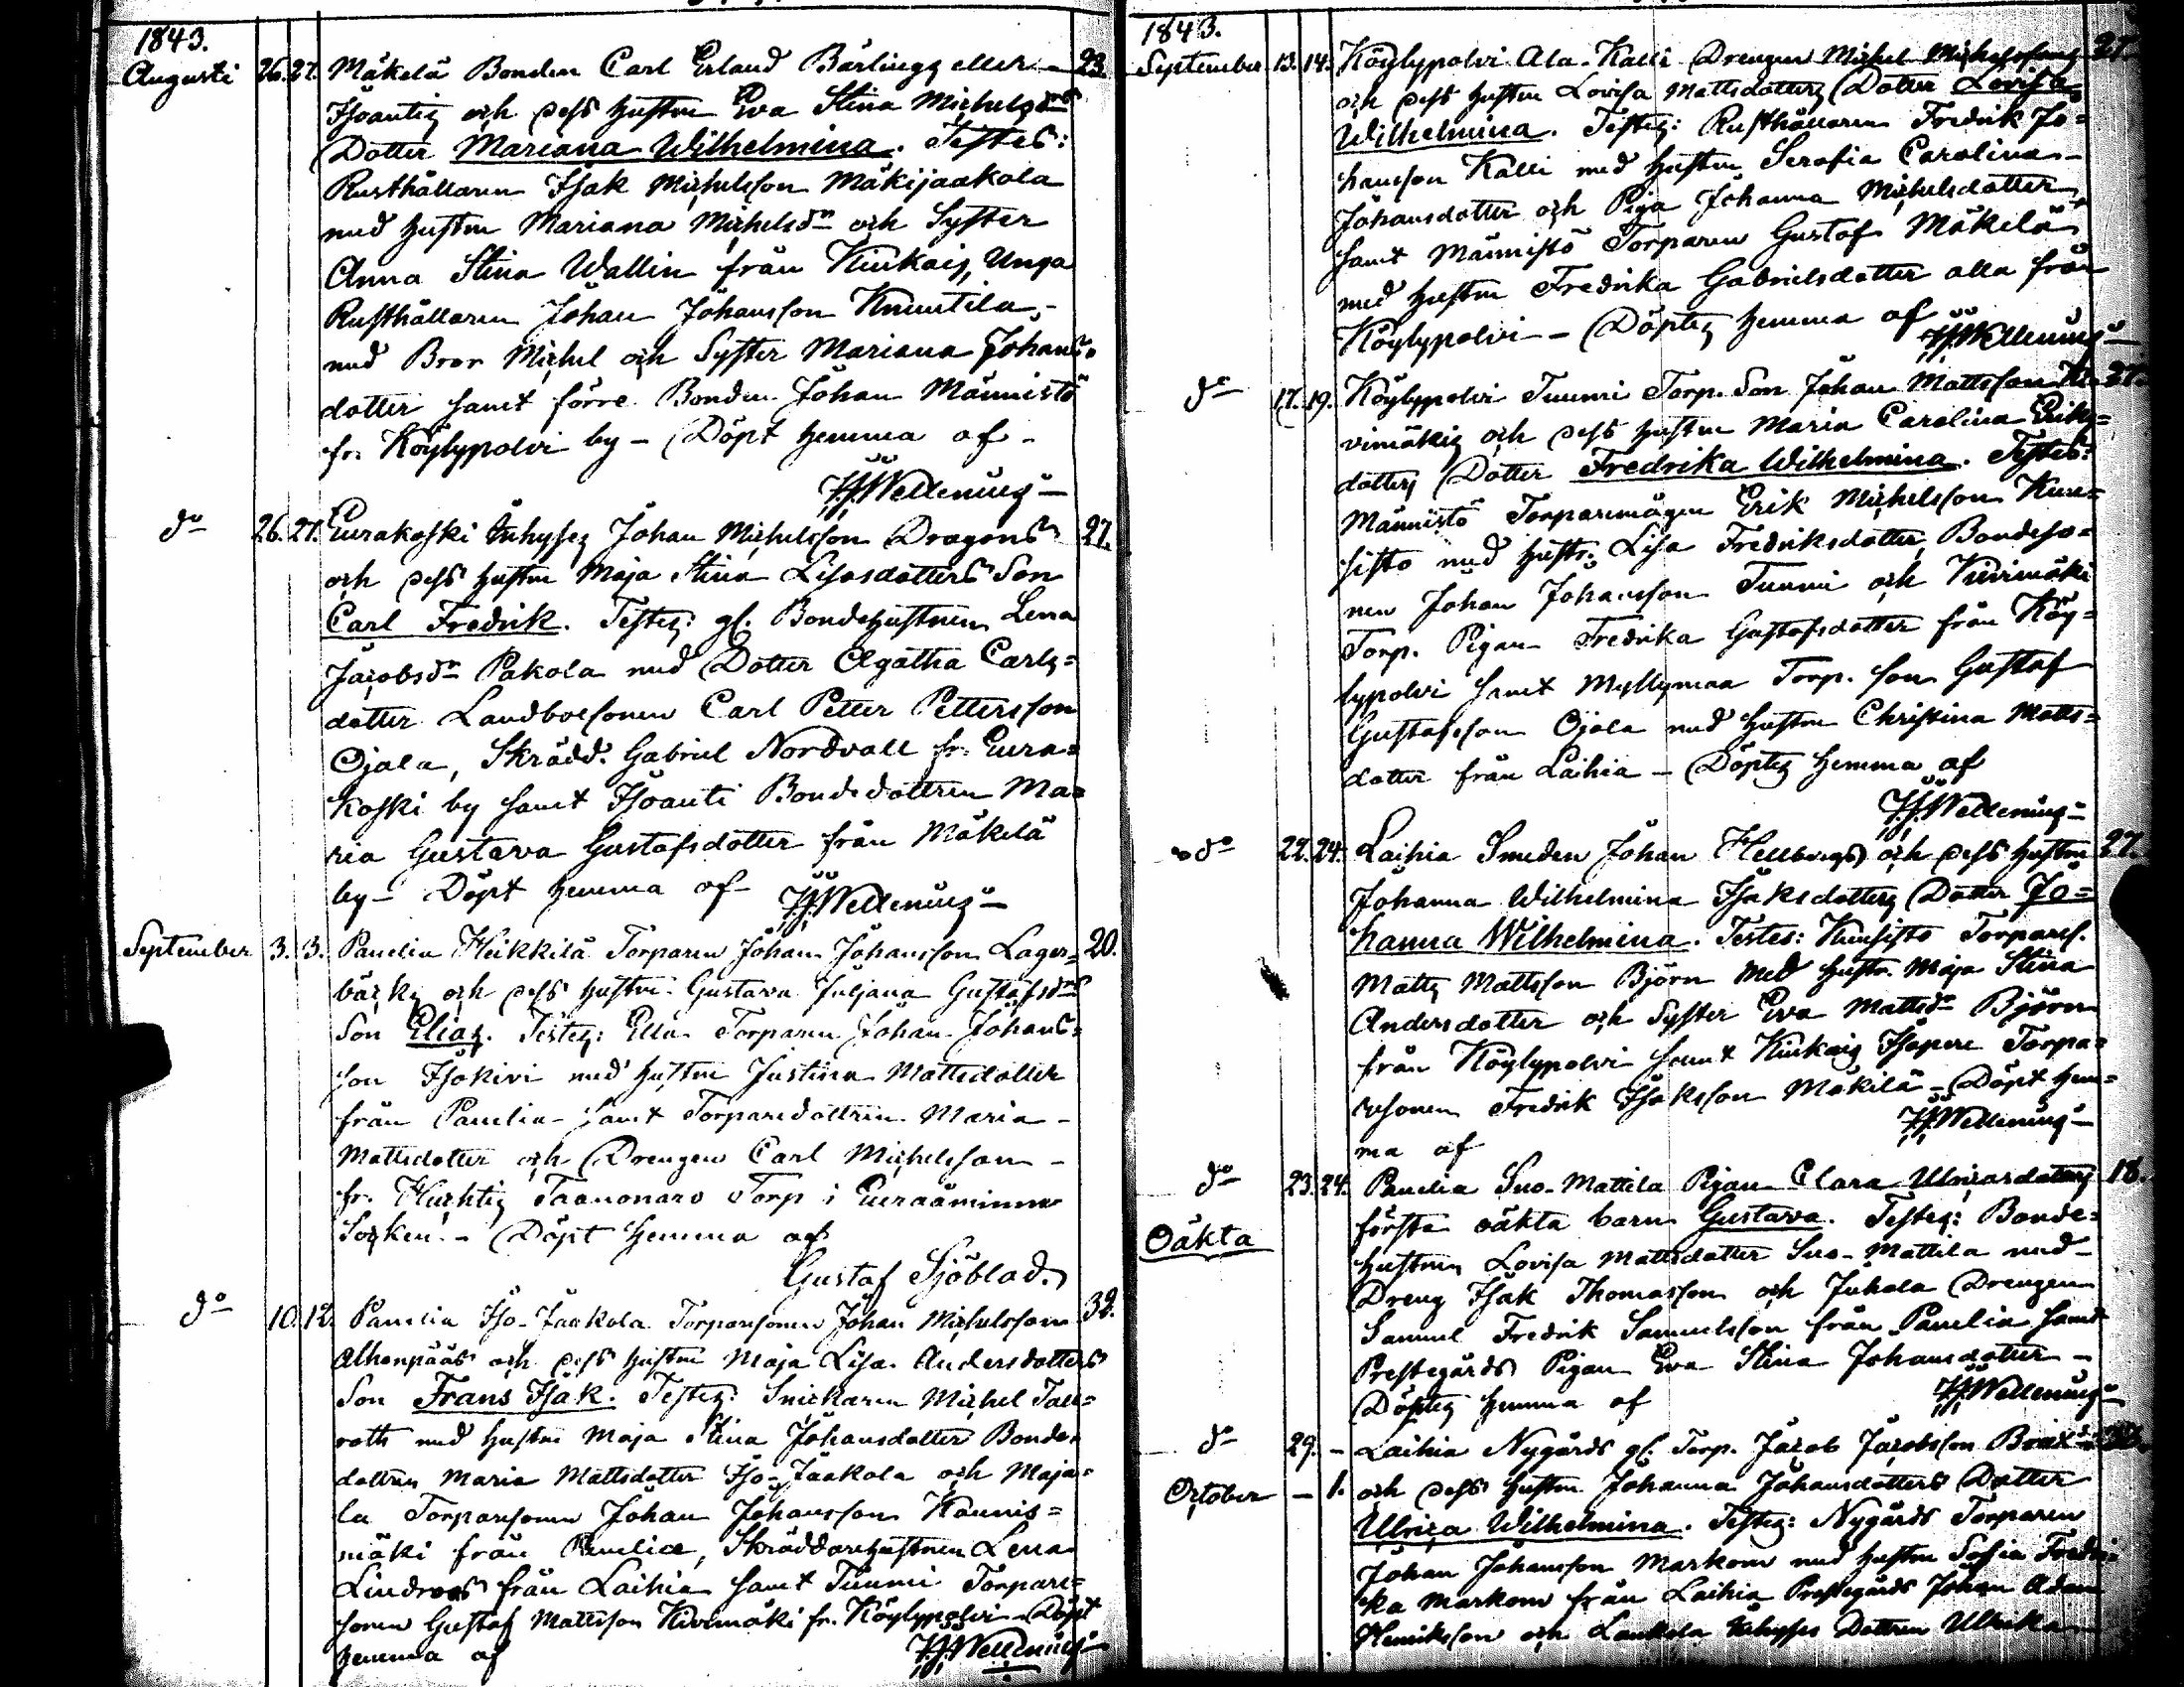 1843.
Augusti 26. 27. Mäkelä Bonden Carl Erland Bärlings eller 23.
Isoantis och dess hustru Eva Stina Michelsdrs
Dotter Mariana Wilhelmina. Testes:
Rusthållaren Isak Michelsson Mäkijaakola
med hustru Mariana Michelsdr och Syster
Anna Stina Wallin från Kiukais, Unga
Rusthållaren Johan Johansson Knuutila
med Bror Michel och Syster Mariana Johans-
dotter samt förre Bonden Johan Männistö
fr. Köylypolvi by – Döpt hemma af –
Wellenius
do 26. 27. Eurakoski Inhyses Johan Michelsson Dragons 27.
och dess hustru Maja Stina Lisasdotters Son
Carl Fredrik. Testes: gl. Bondehustrun Lena
Jacobsdr Pakola med Dotter Agatha Carls=
dotter Landboesonen Carl Petter Pettersson
Ojala, Skrädd. Gabriel Nordvall fr. Eura=
koski by samt Isoanti Bondedottren Ma=
ria Gustava Gustafsdotter från Mäkelä
by – Döpt hemma af –
Wellenius
September 3. 3. Panelia Heikkilä Torparen Johan Johansson Lager= 20.
bäcks och dess hustru Gustava Juljana Gustafsdrs
Son Elias. Testes: Torparen Johan Johans=
son Isokivi med hustru Justina Mattsdotter
från Panelia – samt Torparedottren Maria –
Mattsdotter och Drengen Carl Michelsson –
fr. Huhtis Torp i Euraåminne
Socken. – Döpt hemma af
Gustaf Sjöblad.
do 10. 12. Panelia Iso-Jaakola Torparesonen Johan Michelsson 32.
Alhonpääs och dess hustru Maja Lisa Andersdotters
Son Frans Isak. Testes: Snickaren Michel Tall=
roth med hustru Maja Stina Johansdotter Bonde=
dottren Maria Mattsdotter Iso-Jaakola och Maja=
la Torparesonen Johan Johansson Kaunis=
mäki från Panelia, Skräddarehustrun Lena
Lindroos från Laihia samt Tuumi Torpare=
sonen Gustaf Mattsson Kivimäki fr. Köylypolvi – Döpt
hemma af
Wellenius
1843.
September 13. 14. Köylypolvi Ala-Kalli Drengen Michel Michelssons 27.
och dess hustru Lovisa Mattsdotters Dotter Lovisa
Wilhelmina. Testes: Rusthållaren Fredrik Jo=
hansson Kalli med hustru Serafia Carolina
Johansdotter och Piga Johanna Michelsdotter
samt Männistö Torparen Gustaf Mäkelä
med hustru Fredrika Gabrielsdotter alla från
Köylypolvi – Döptes hemma af
Wellenius
do 17. 19. Köylypolvi Tuumi Torp. Son Johan Mattsson Ki= 27.
vimäkis och dess hustru Maria Carolina Eriks=
dotters Dotter Fredrika Wilhelmina. Testes:
Männistö Torparemågen Erik Michelsson Kuu=
sisto med hustr: Lisa Fredriksdotter, Bondeso=
nen Johan Johansson Tuumi och Kivimäki
Torp. Pigan Fredrika Gustafsdotter från Köy=
lypolvi samt Myllymaa Torp. son Gustaf
Gustafsson Ojala med hustru Christina Matts=
dotter från Laihia – Döptes hemma af
Wellenius
do 22. 24. Laihia Smeden Johan Hellbergs och dess hustru 27.
Johanna Wilhelmina Isaksdotters Dotter Jo=
hanna Wilhelmina. Testes: Kuusisto Torpares.
Matts Mattsson Björn med hustr. Maja Stina
Andersdotter och Syster Eva Mattsdr Björn
från Köylypolvi samt Kiukais Torpa=
resonen Fredrik Isaksson Mäkilä – Döpt hem=
ma af
Wellenius
do 23. 24. Panelia Suo-Mattila Pigan Clara Ulricasdotters 18.
Oäkta
första oäkta barn Gustava. Testes: Bonde=
hustrun Lovisa Mattsdotter Suo-Mattila med
Dreng Isak Thomasson och Juhola Drengen
Samuel Fredrik Samuelsson från Panelia samt
Prestegårds Pigan Eva Stina Johansdotter –
Döptes hemma af
Wellenius
do 29. – Laihia Nygårds gl. Torp. Jacob Jacobsson
October – 1. och dess hustru Johanna Johansdotters Dotter
Ulrica Wilhelmina. Testes: Nygårds Torparen
Johan Johansson Markom med hustru Sofia Fredri=
ka Markom från Laihia Prestegårds Johan Adam
Henriksson och Inhyses Dottren Ulrika